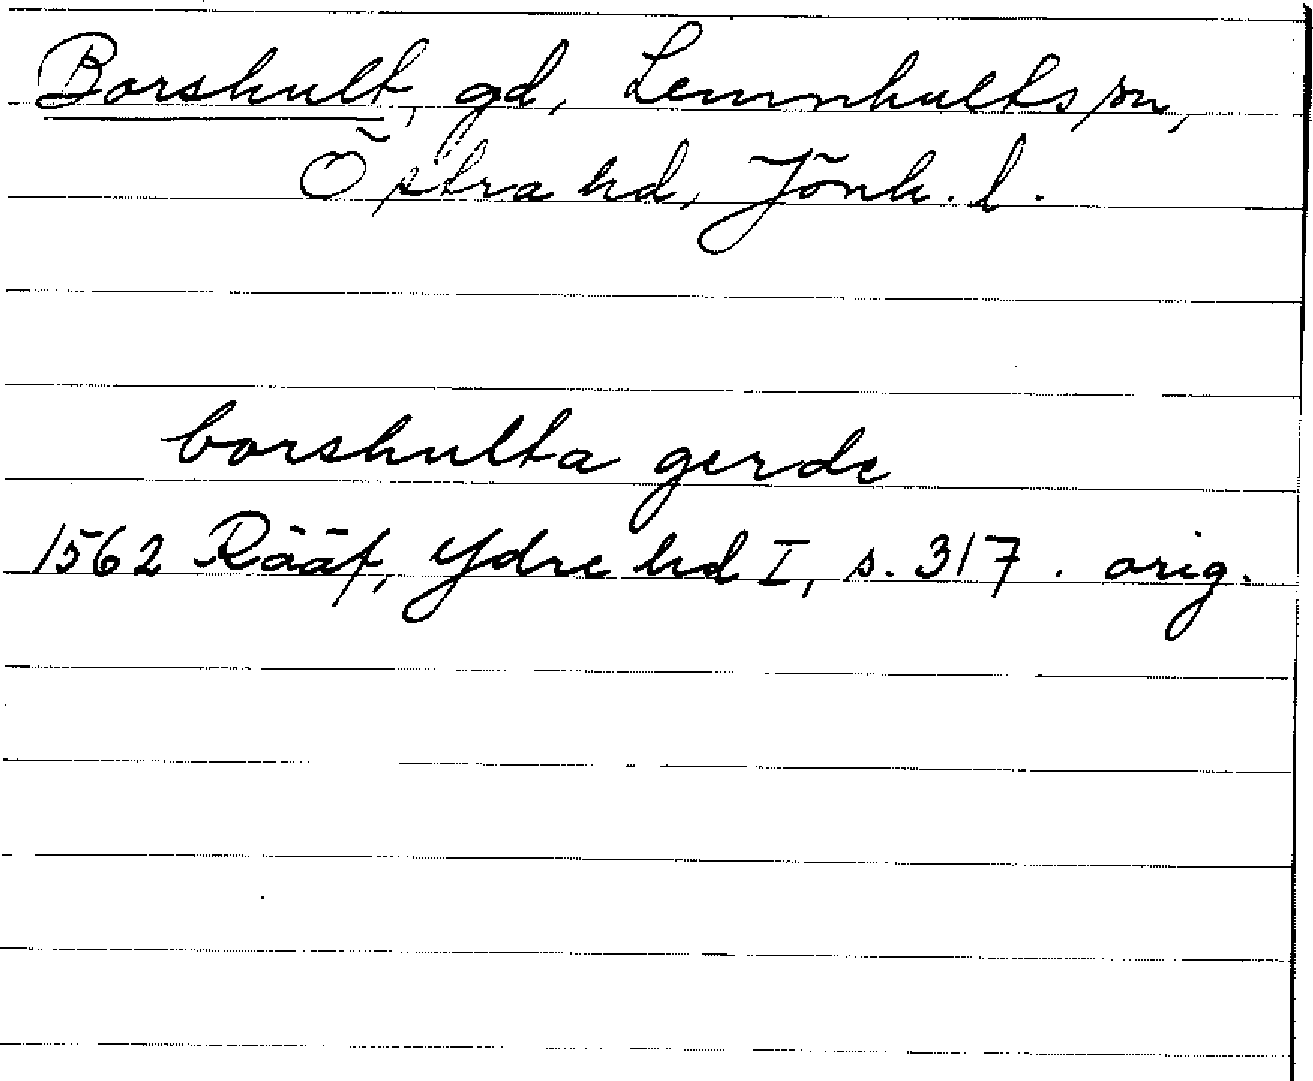 Borshult, gd, Lemnhults sn,
Östra hd, Jönk. l.
borshulta gerde
1562 Rääf, Ydre hd I, s. 317. orig.